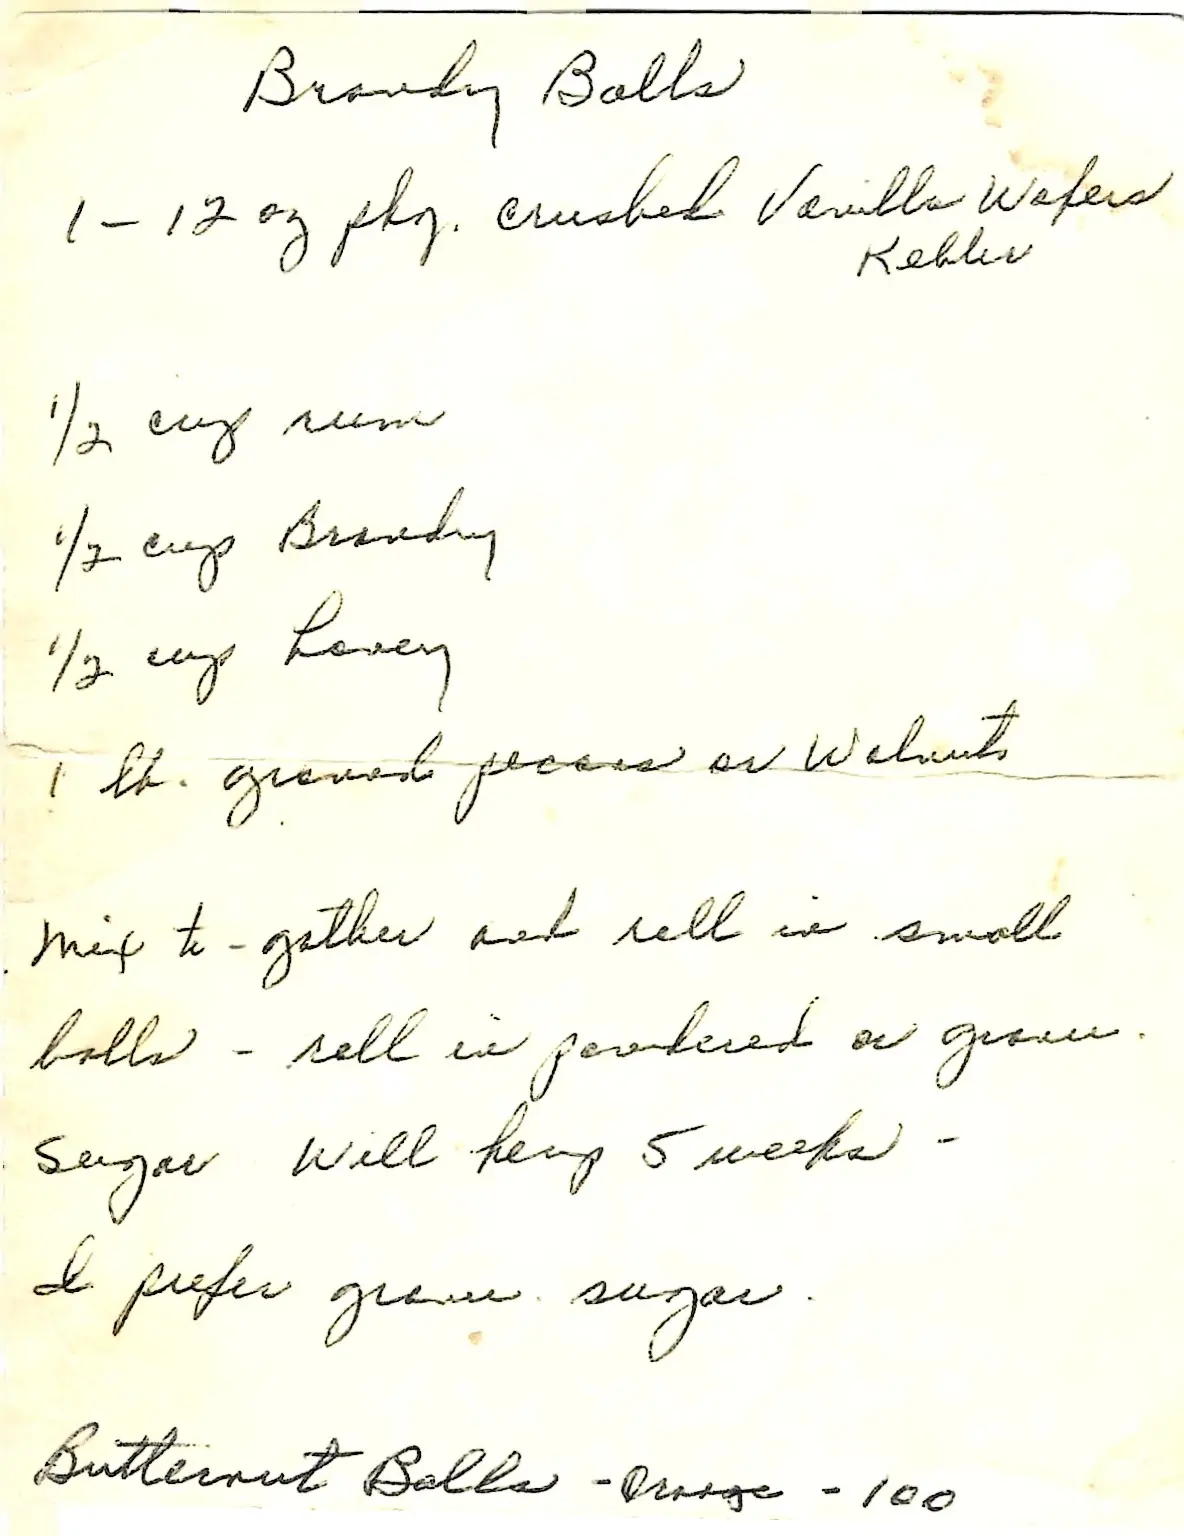 Brandy Balls
1 - 12 oz pkg. crushed Vanilla Wafers
Kebler
1/2 cup rum
1/2 cup Brandy
1/2 cup honey
1 lb. ground pecans or Walnuts
Mix to-gather and roll in small
balls - roll in powdered or granu.
sugar Will keep 5 weeks -
I prefer granu. sugar.
Butternut Balls - Orange - 100